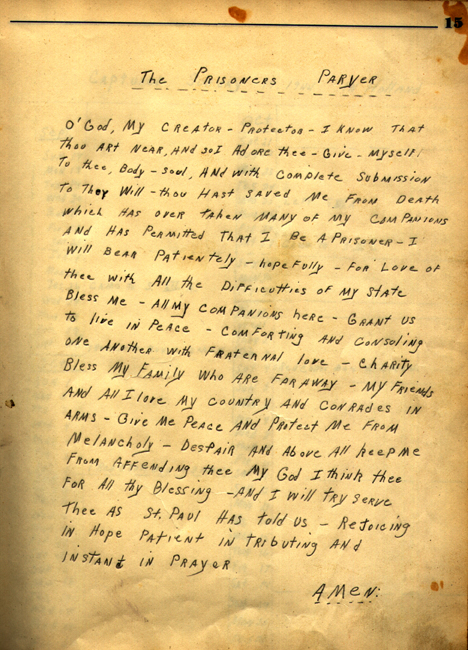 15
The Prisoners Paryer
O' God, My Creator - Protector - I Know That
thou Art Near, And so I Adore thee - Give - Myself!
To thee, Body - soul, And with Complete Submission
To They Will - thou Hast saved Me From Death
Which Has over taken Many of My Companions
And Has Permitted That I Be A Prisoner - I
Will Bear Patiently - hopefully - For Love of
thee with All the Difficutties of My State
Bless Me - All My Companions here - Grant us
to live in Peace - Comforting And Consoling
one Another with Fraternal love - Charity
Bless My Family Who Are Far away - My Friends
And All I love My Country And Conrades in
Arms - Give Me Peace And Protect Me From
Melancholy - Despair And Above All keep Me
From Affending thee My God I think thee
For All thy Blessing - And I Will try serve
Thee As St. Paul Has told us - Rejoicing
in Hope Patient in Tributing And
instant in Prayer
Amen: